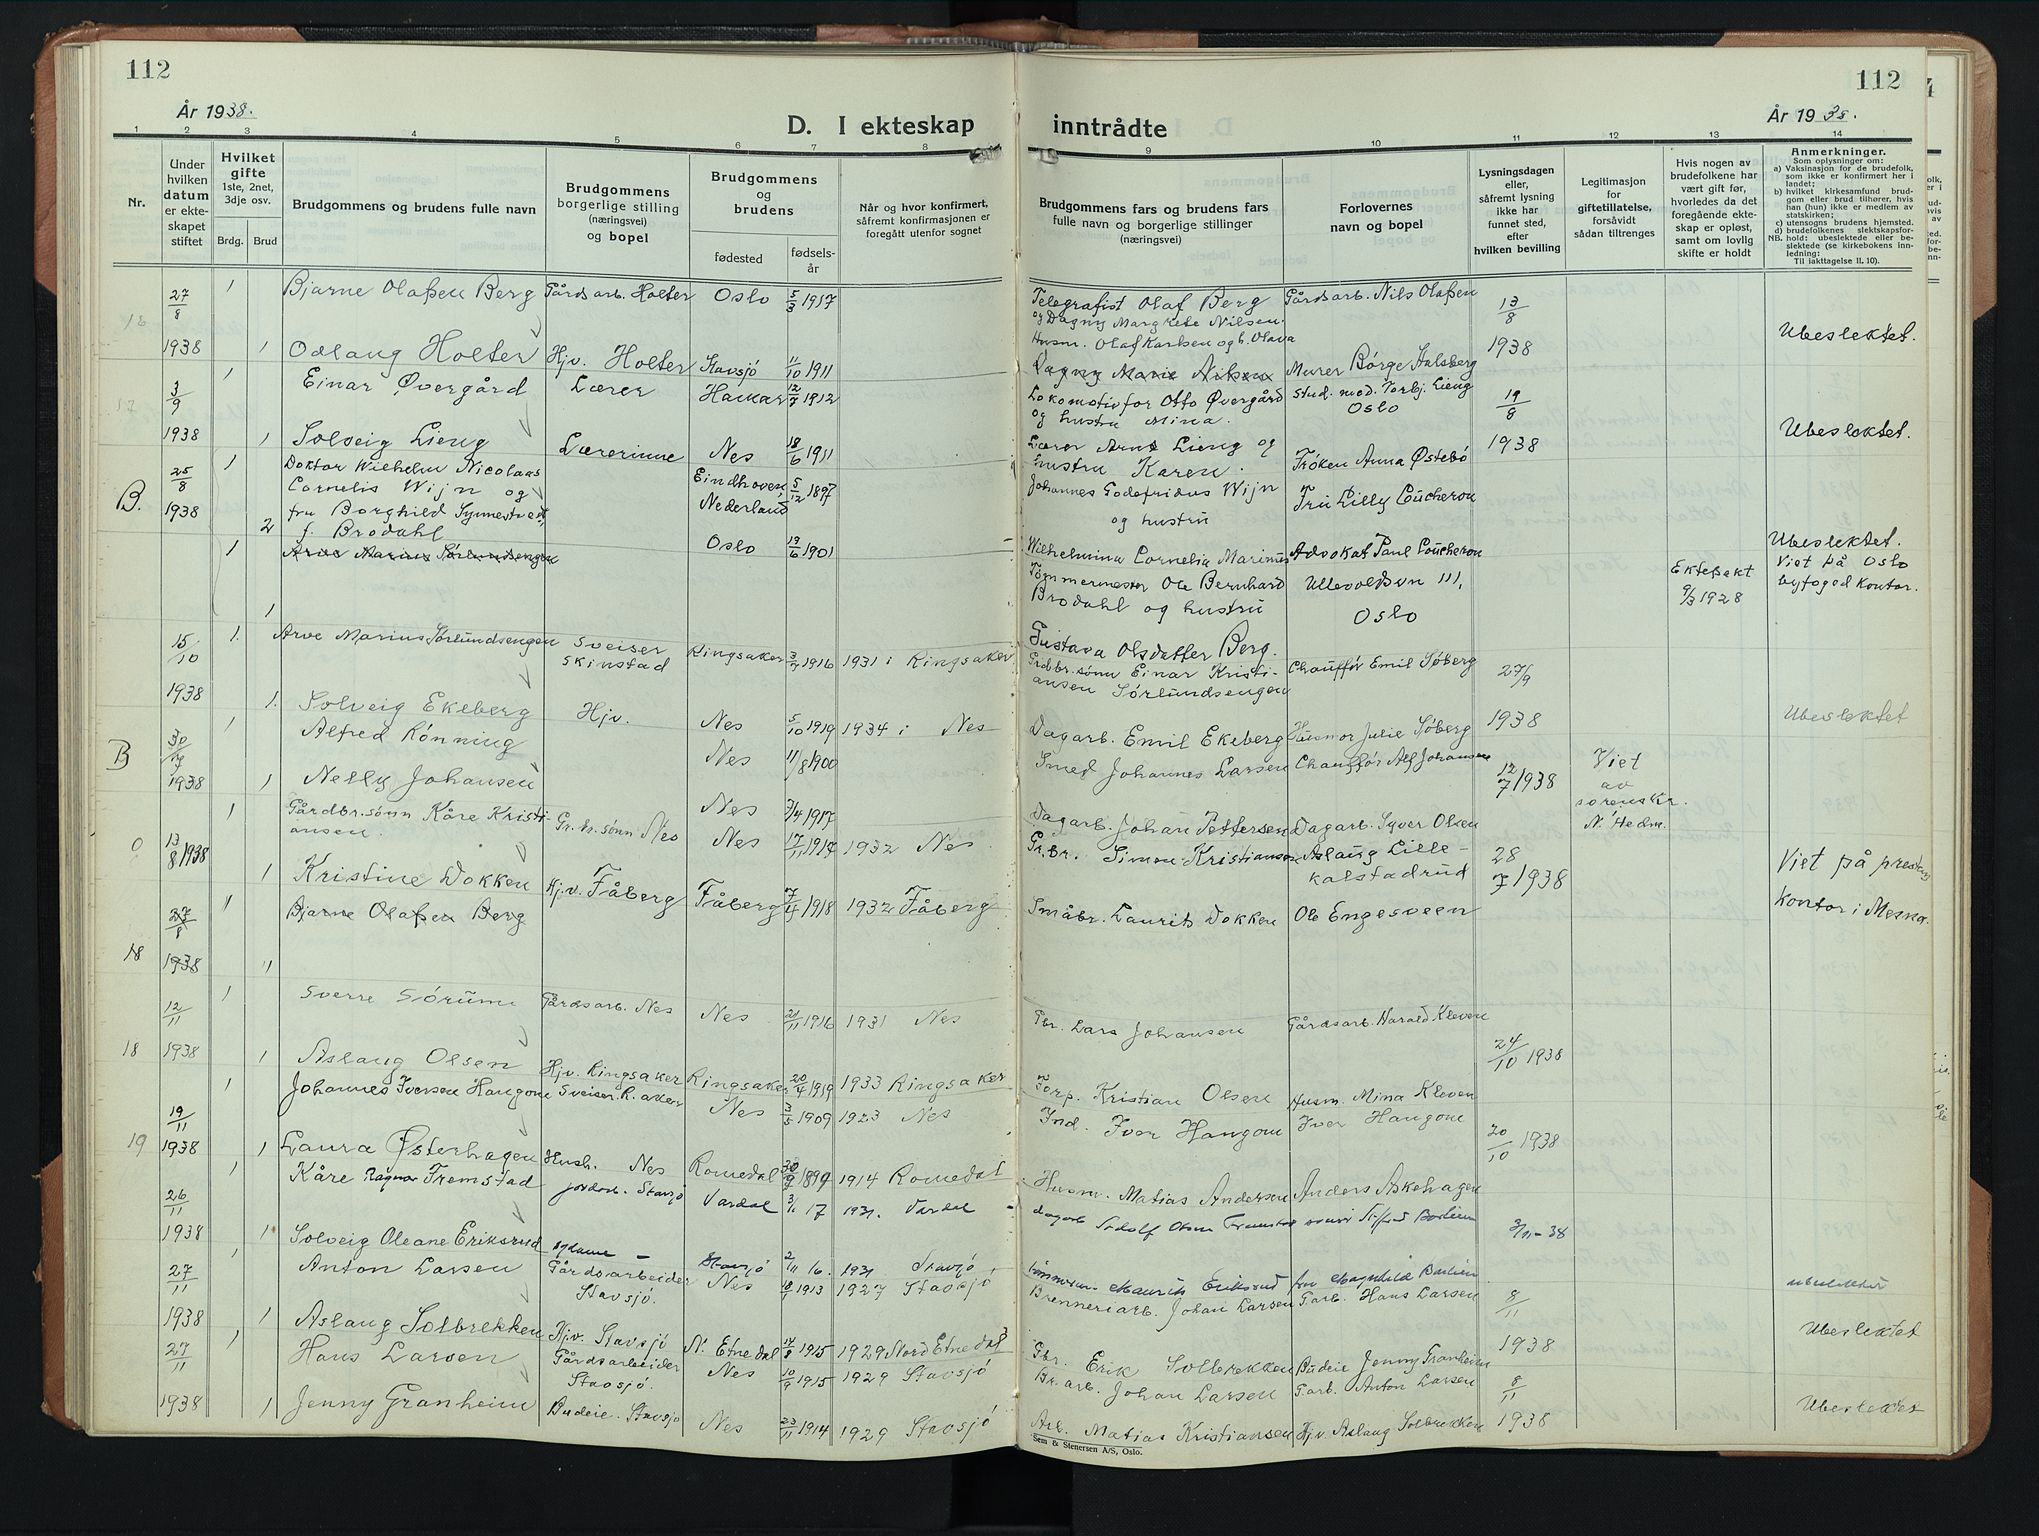 112
År 1938.
D. I ekteskap
1 2 3 4 5 6 7 8
Nr.
Under hvilken datum er ekteskapet stiftet
Hvilket gifte 1ste, 2net, 3dje osv.
Brdg. Brud
Brudgommens og brudens fulle navn
Brudgommens borgerlige stilling (næringsvei) og bopel
Brudgommens og brudens
fødested
fødselsår
Når og hvor konfirmert, såfremt konfirmasjonen er foregått utenfor sognet
27/8 1 Bjarne Olaßen Berg Gårdsarb. Holter Oslo 5/3 1917
1938 1 Odlaug Holter Hjv. Holter Stavsjö 11/10 1911
17 3/9 1 Einar Øvergård Lærer Hamar 12/7 1912
1938 1 Solveig Lieng Lærerinne Nes 18/6 1911
25/8 1 Doktor Wilhelm Nicolaas Eindhoven 5/12 1897
B. 1938 Cornelis Wijn og Nederland
fru Borghild
2 f. Brodahl Oslo 19/6 1901
1 Arve Marius Sörlundsengen
1
15/10 1. Arve Marius Sörlundsengen Sveiser Skinstad Ringsaker 1916 1931 i Ringsaker
1938 1. Solveig Ekeberg Hjv. Nes 5/10 1919 1934 i Nes
B 1 Alfred Rönning Nes 11/8 1900
1938 1 Nelly Johansen Nes 7/4 1917
0 13/8 1938 1 Gårdbr.sönn Kåre Kristiansen. Gr. br. sönn Nes Nes 17/11 1914 1932 Nes
1 Kristine Dokken Hjv. Fåberg Fåberg 7/4 1918 1932 Fåberg
27/8 1 Bjarne Olaßen Berg
18 1938 "
12/11 1 Sverre Sörum Gårdsarb. Nes Nes 1916 1931 Nes
18 1938 1 Aslaug Olsen Hjv. Ringsaker Ringsaker 20/4 1919 1933 Ringsaker
19/11 1 Johannes Iversen Haugom Sveiser. R.aker Nes 3/5 1909 1923 Nes
19 1938 1 Laura Østerhagen Hush. Nes Romedal 1899 1914 Romedal
26/11 1 Kåre Ragnar Fremstad jordarb. Stavsjö Vardal 3/11 17 1931. Vardal
1938 1 Solveig Oleane Eriksrud Stavsjö 2/11 16. 1931 Stavsjö
27/11 1 Anton Larsen Gårdsarbeider Stavsjö. Nes 18/1 1913 1927 Stavsjö
1938 1 Aslaug Solbrekken Hjv. Stavsjö N. Etnedal 14/8 1915 1929 Nord Etnedal
27/11 1 Hans Larsen Gårdsarbeider Stavsjö. Nes 10/9 1915 1929 Stavsjö
1938 1 Jenny Granheim Budeie. Stavsjø Nes 23/11 1914 1929 Stavsjö
112
År 1938.
inntrådte
9 10 11 12 13 14
Brudgommens fars og brudens fars fulle navn og borgerlige stillinger (næringsvei)
Forlovernes navn og bopel
Lysningsdagen eller, såfremt lysning ikke har funnet sted, efter hvilken bevilling
Legitimasjon for giftetillatelse, forsåvidt sådan tiltrenges
Hvis nogen av brudefolkene har vært gift før, hvorledes da det foregående ekteskap er opløst, samt om lovlig skifte er holdt
Anmerkninger.
Som oplysninger om:
a) Vaksinasjon for de brudefolk, som ikke er konfirmert her i landet;
b) hvilket kirkesamfund brudgom eller brud tilhører, hvis han (hun) ikke er medlem av statskirken;
c) utensogns brudens hjemsted.
d) brudefolkenes slektskapsforhold: ubeslektede eller beslektede (se kirkebokens innledning:
NB. Til iakttagelse II. 10).
Telegrafist Olaf Berg Gårdsarb. Nils Olaßen 13/8
og Dagny Margrete Nilsen.
Husm. Olaf Karlsen og h. Olava 1938 Ubeslektet.
Dagny Marie Nilsen Murer Börge Halsberg
Lokomotivför Otto Øvergård stud. med. Torbj. Lieng 19/8
og hustru Mina. Oslo
Lærer Arne Lieng og 1938 Ubeslektet.
hustru Karen. Fröken Anna Østebö
Johannes Godefridus Wijn Fru Lilly Coucheron
og hustru
Wilhelmina Cornelia Advokat Paul Coucheron Ubeslektet.
Tömmermester Ole Bernhard Ullevoldsvn 111, Ektepakt 9/3 1928 Viet på Oslo
Brodahl og hustru Oslo byfoged kontor.
Gustava Olsdatter Berg.
Grdbr.sönn Einar Kristiansen Sörlundsengen Chaufför Emil Söberg 27/9
Dagarb. Emil Ekeberg Husmor Julie Söberg 1938 Ubeslektet
Smed Johannes Larsen Chaufför Alf Johansen 12/7 1938 Viet av sorenskr. N. Hedm.
Dagarb. Johan Pettersen Dagarb. Syver Olsen
Gr.br. Simon Kristiansen Aslaug Lillekalstadrud 28/7 1938 Viet på prestens
Småbr. Laurits Dokken Ole Engesveen kontor i Mesna.
Gbr. Lars Johansen Gårdsarb. Harald Kleven 24/10 1938
Torp. Kristian Olsen Husm. Mina Kleven
Ind. Iver Haugom Iver Haugom 20/10 1938
Husm. Matias Andersen Anders Askehagen
dagarb. 3/11-38
Maurits Eriksrud fru Magnhild ubeslektet
Brenneriarb. Johan Larsen G.arb. Hans Larsen 8/11
Gbr. Erik Solbrekken Budeie Jenny Granheim 1938 Ubeslektet
Br.arb. Johan Larsen G.arb. Anton Larsen 8/11
Arb. Matias Kristiansen Hjv. Aslaug Solbrekken 1938 Ubeslektet
Sem & Stenersen A/S, Oslo.